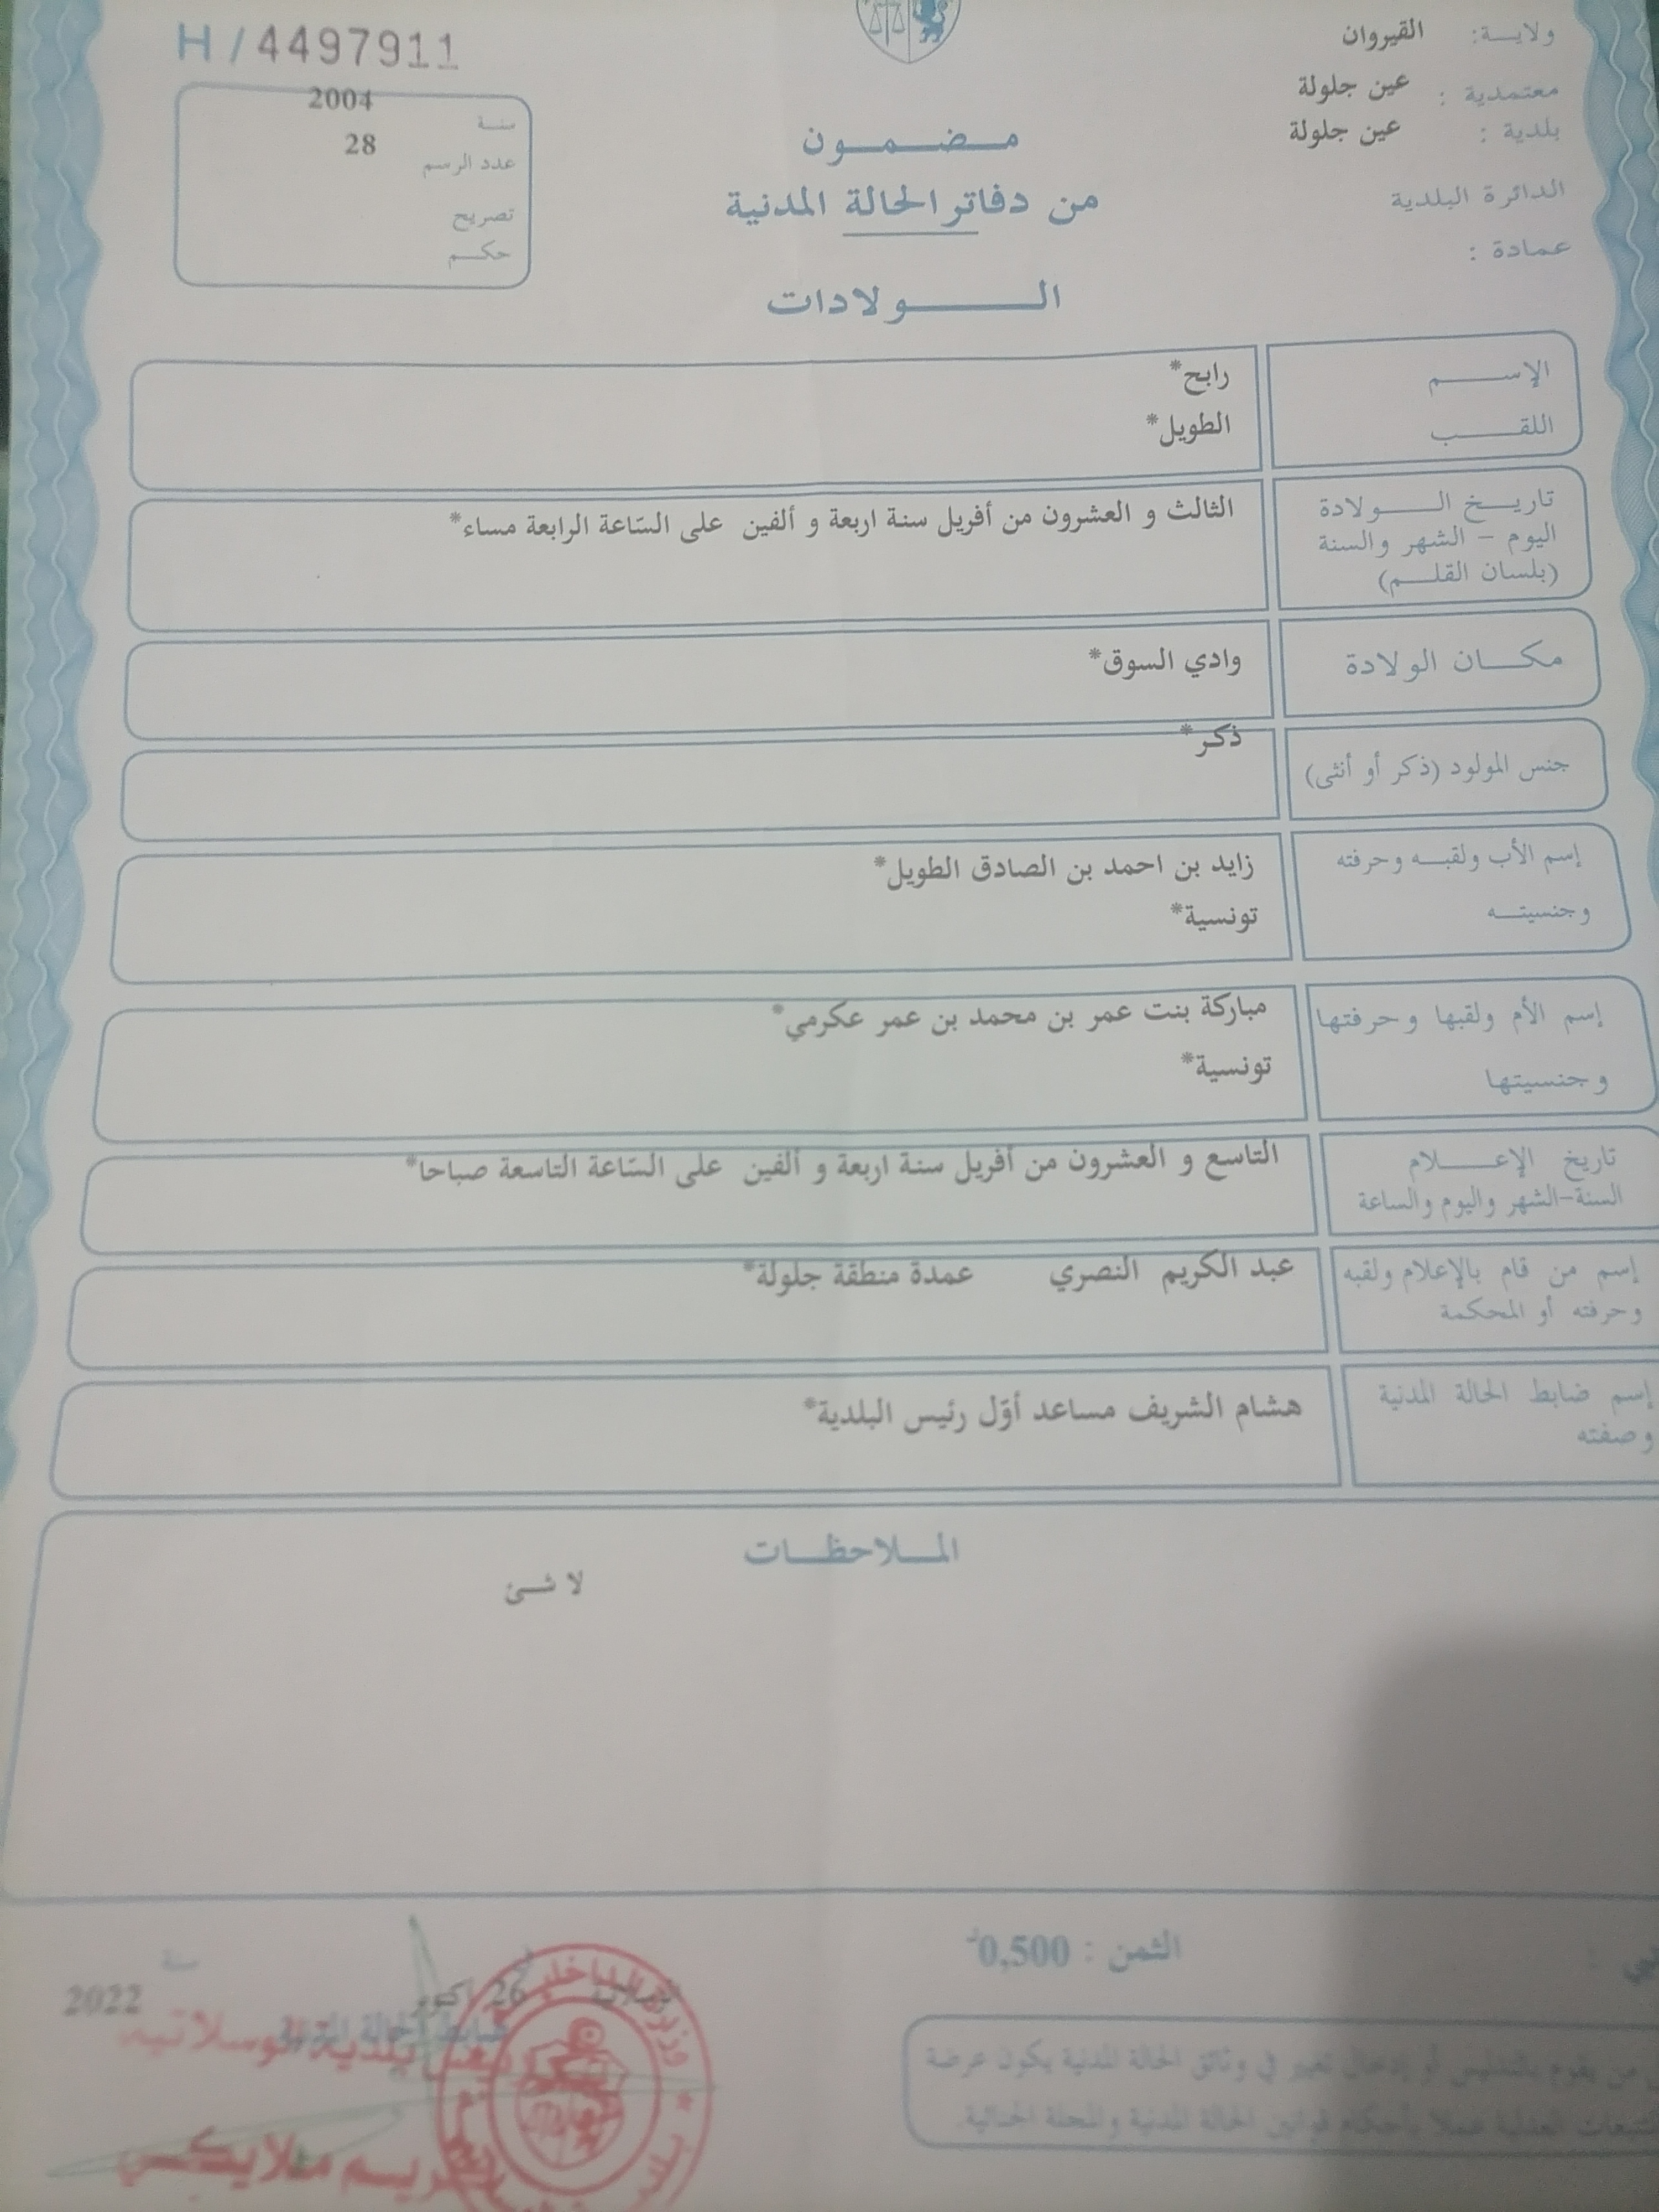 ولاية: القيروان
معتمدية : عين جلولة
بلدية : عين جلولة
الدائرة البلدية
عمادة :
H / 4497911
سنة 2004
عدد الرسم 28
تصريح
حكم
مضمون
من دفاتر الحالة المدنية
الولادات
الإسم رابح*
اللقب الطويل*
تاريخ الولادة
اليوم - الشهر والسنة
(بلسان القلم)
الثالث و العشرون من أفريل سنة اربعة و ألفين على السّاعة الرابعة مساء*
مكان الولادة وادي السوق*
جنس المولود (ذكر أو أنثى) ذكر*
إسم الأب ولقبه وحرفته
وجنسيته
زايد بن احمد بن الصادق الطويل*
تونسية*
إسم الأم ولقبها وحرفتها
وجنسيتها
مباركة بنت عمر بن محمد بن عمر عكرمي*
تونسية*
تاريخ الإعلام
السنة-الشهر واليوم والساعة
التاسع و العشرون من أفريل سنة اربعة و ألفين على السّاعة التاسعة صباحا*
إسم من قام بالإعلام ولقبه
وحرفته أو المحكمة
عبد الكريم النصري عمدة منطقة جلولة*
إسم ضابط الحالة المدنية
وصفته
هشام الشريف مساعد أوّل رئيس البلدية*
الملاحظات
لا شئ
الثمن : 0,500د
الوسلاتية 26 أكتوبر سنة 2022
ضابط الحالة المدنية
بلدية الوسلاتية
من يقوم بالتدليس أو إدخال تغيير في وثائق الحالة المدنية يكون عرضة
للتتبعات العدلية عملا بأحكام قوانين الحالة المدنية والمجلة الجنائية.